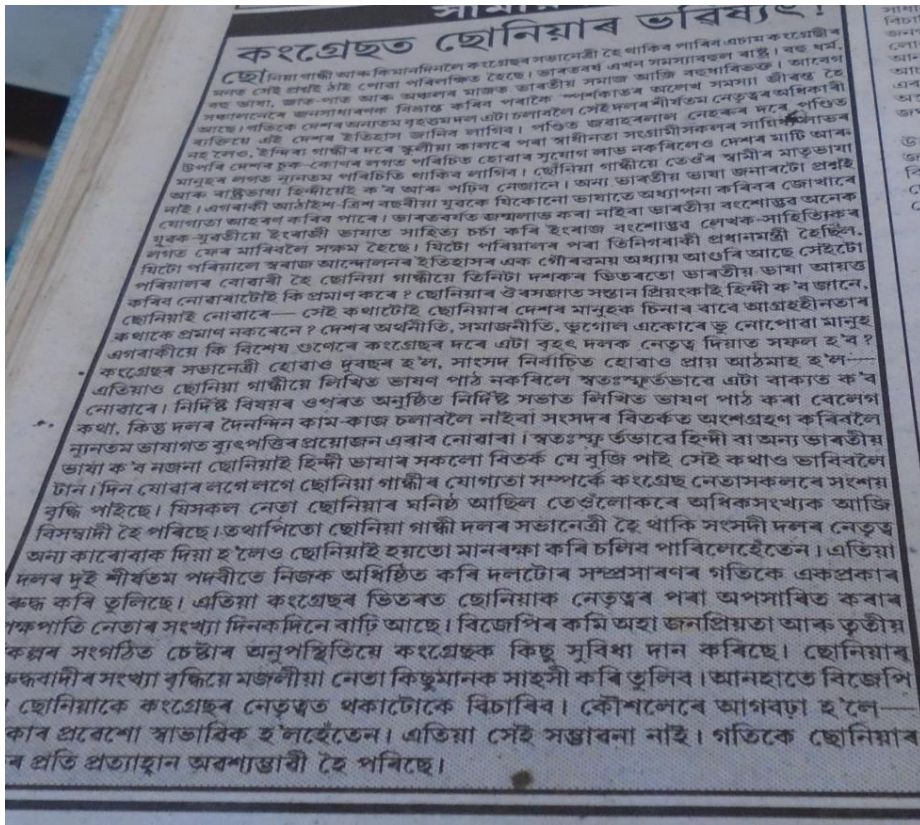 কংগ্ৰেছত ছোনিয়াৰ ভৱিষ্যৎ!
ছোনিয়া গান্ধী আৰু কিমানদিনলৈ কংগ্ৰেছৰ সভানেত্ৰী হৈ থাকিব পাৰিব এচাম কংগ্ৰেছীৰ
মনত সেই প্ৰশ্নই ঠাই পোৱা পৰিলক্ষিত হৈছে। ভাৰতবৰ্ষ এখন সমস্যাবহুল ৰাষ্ট্ৰ। বহু ধৰ্ম,
বহু ভাষা, জাত-পাত আৰু অঞ্চলৰ মাজত ভাৰতীয় সমাজ আজি বহুধাবিভক্ত। আবেগ
সঞ্চালনেৰে জনসাধাৰণক বিভ্ৰান্ত কৰিব পৰাকৈ স্পৰ্শকাতৰ অলেখ সমস্যা জীৱন্ত হৈ
আছে। গতিকে দেশৰ অন্যতম বৃহত্তম দল এটা চলাবলৈ সেই দলৰ শীৰ্ষতম নেতৃত্বৰ অধিকাৰী
ব্যক্তিয়ে এই দেশৰ ইতিহাস জানিব লাগিব। পণ্ডিত জৱাহৰলাল নেহৰুৰ দৰে পণ্ডিত
নহ'লেও, ইন্দিৰা গান্ধীৰ দৰে স্কুলীয়া কালৰে পৰা স্বাধীনতা সংগ্ৰামীসকলৰ সান্নিধ্য লাভৰ
উপৰি দেশৰ চুক-কোণৰ লগত পৰিচিত হোৱাৰ সুযোগ লাভ নকৰিলেও দেশৰ মাটি আৰু
মানুহৰ লগত ন্যূনতম পৰিচিতি থাকিব লাগিব। ছোনিয়া গান্ধীয়ে তেওঁৰ স্বামীৰ মাতৃভাষা
আৰু ৰাষ্ট্ৰভাষা হিন্দীয়েই ক'ব আৰু পঢ়িব নেজানে। অন্য ভাৰতীয় ভাষা জনাৰটো প্ৰশ্নই
নাই। এগৰাকী আঠাইশ-ত্ৰিশ বছৰীয়া যুৱকে যিকোনো ভাষাতে অধ্যাপনা কৰিবৰ জোখাৰে
যোগ্যতা আহৰণ কৰিব পাৰে। ভাৰতবৰ্ষত জন্মলাভ কৰা নাইবা ভাৰতীয় বংশোদ্ভৱ অনেক
যুৱক-যুৱতীয়ে ইংৰাজী ভাষাত সাহিত্য চৰ্চা কৰি ইংৰাজ বংশোদ্ভৱ লেখক-সাহিত্যিকৰ
লগত ফেৰ মাৰিবলৈ সক্ষম হৈছে। যিটো পৰিয়ালৰ পৰা তিনিগৰাকী প্ৰধানমন্ত্ৰী হৈছিল,
যিটো পৰিয়ালে স্বৰাজ আন্দোলনৰ ইতিহাসৰ এক গৌৰৱময় অধ্যায় আগুৰি আছে সেইটো
পৰিয়ালৰ বোৱাৰী হৈ ছোনিয়া গান্ধীয়ে তিনিটা দশকৰ ভিতৰতো ভাৰতীয় ভাষা আয়ত্ত
কৰিব নোৱাৰাটোৱেই কি প্ৰমাণ কৰে? ছোনিয়াৰ ঔৰসজাত সন্তান প্ৰিয়ংকাই হিন্দী ক'ব জানে,
ছোনিয়াই নোৱাৰে— সেই কথাটোৱেই ছোনিয়াৰ দেশৰ মানুহক চিনাৰ বাবে আগ্ৰহহীনতাৰ
কথাকে প্ৰমাণ নকৰেনে? দেশৰ অৰ্থনীতি, সমাজনীতি, ভূগোল একোৰে ভূ নোপোৱা মানুহ
এগৰাকীয়ে কি বিশেষ গুণেৰে কংগ্ৰেছৰ দৰে এটা বৃহৎ দলক নেতৃত্ব দিয়াত সফল হ'ব?
কংগ্ৰেছৰ সভানেত্ৰী হোৱাও দুবছৰ হ'ল, সাংসদ নিৰ্বাচিত হোৱাও প্ৰায় আঠমাহ হ'ল—
এতিয়াও ছোনিয়া গান্ধীয়ে লিখিত ভাষণ পাঠ নকৰিলে স্বতঃস্ফূৰ্তভাৱে এটা বাক্যত ক'ব
নোৱাৰে। নিৰ্দিষ্ট বিষয়ৰ ওপৰত অনুষ্ঠিত নিৰ্দিষ্ট সভাত লিখিত ভাষণ পাঠ কৰা বেলেগ
কথা, কিন্তু দলৰ দৈনন্দিন কাম-কাজ চলাবলৈ নাইবা সংসদৰ বিতৰ্কত অংশগ্ৰহণ কৰিবলৈ
ন্যূনতম ভাষাগত ব্যুৎপত্তিৰ প্ৰয়োজন এৰাব নোৱাৰা। স্বতঃস্ফূৰ্তভাৱে হিন্দী বা অন্য ভাৰতীয়
ভাষা ক'ব নজনা ছোনিয়াই হিন্দী ভাষাৰ সকলো বিতৰ্ক যে বুজি পাই সেই কথাও ভাবিবলৈ
টান। দিন যোৱাৰ লগে লগে ছোনিয়া গান্ধীৰ যোগ্যতা সম্পৰ্কে কংগ্ৰেছ নেতাসকলৰে সংশয়
বৃদ্ধি পাইছে। যিসকল নেতা ছোনিয়াৰ ঘনিষ্ঠ আছিল তেওঁলোকৰে অধিকসংখ্যক আজি
বিসম্বাদী হৈ পৰিছে। তথাপিতো ছোনিয়া গান্ধী দলৰ সভানেত্ৰী হৈ থাকি সংসদী দলৰ নেতৃত্ব
অন্য কাৰোবাক দিয়া হ'লেও ছোনিয়াই হয়তো মানৰক্ষা কৰি চলিব পাৰিলেহেঁতেন। এতিয়া
দলৰ দুই শীৰ্ষতম পদবীতে নিজক অধিষ্ঠিত কৰি দলটোৰ সম্প্ৰসাৰণৰ গতিকে একপ্ৰকাৰ
ৰুদ্ধ কৰি তুলিছে। এতিয়া কংগ্ৰেছৰ ভিতৰত ছোনিয়াক নেতৃত্বৰ পৰা অপসাৰিত কৰাৰ
পক্ষপাতি নেতাৰ সংখ্যা দিনকদিনে বাঢ়ি আছে। বিজেপিৰ কমি অহা জনপ্ৰিয়তা আৰু তৃতীয়
কল্পৰ সংগঠিত চেষ্টাৰ অনুপস্থিতিয়ে কংগ্ৰেছক কিছু সুবিধা দান কৰিছে। ছোনিয়াৰ
ৰুদ্ধবাদীৰ সংখ্যা বৃদ্ধিয়ে মজলীয়া নেতা কিছুমানক সাহসী কৰি তুলিব। আনহাতে বিজেপি
ছোনিয়াকে কংগ্ৰেছৰ নেতৃত্বত থকাটোকে বিচাৰিব। কৌশলেৰে আগবঢ়া হ'লে—
কাৰ প্ৰৱেশো স্বাভাৱিক হ'লহেঁতেন। এতিয়া সেই সম্ভাৱনা নাই। গতিকে ছোনিয়াৰ
ৰ প্ৰতি প্ৰত্যাহ্বান অৱশ্যম্ভাৱী হৈ পৰিছে।